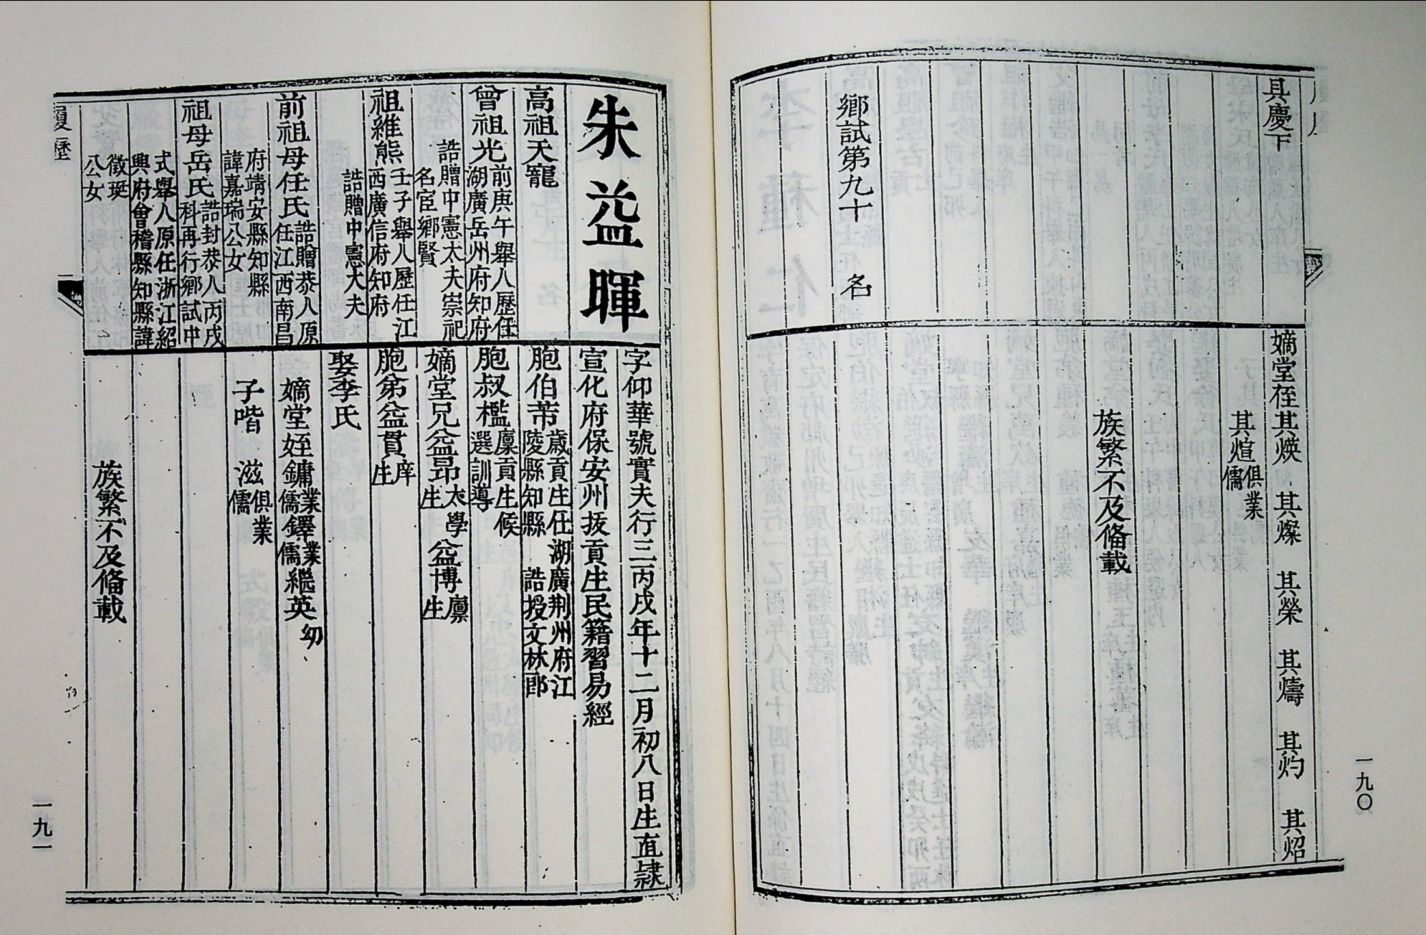 具慶下
鄉試第九十 名
嫡堂侄其煥 其燦 其榮 其燾 其灼 其炤
其煊俱業儒
族繁不及俻載
一九〇
朱益暉
高祖天寵
曾祖光前庚午舉人歷任湖廣岳州府知府
誥贈中憲大夫崇祀名宦鄉賢
祖維熊壬子舉人歷任江西廣信府知府
誥贈中憲大夫
前祖母任氏誥贈恭人原任江西南昌
府靖安縣知縣諱嘉瑞公女
祖母岳氏誥封恭人丙戌科再行鄉試中
式舉人原任浙江紹興府會稽縣知縣諱
徵珽公女
字仰華號實夫行三丙戌年十二月初八日生直隷
宣化府保安州拔貢生民籍習易經
胞伯芾歲貢生任湖廣荆州府江陵縣知縣 誥授文林郎
胞叔檻廩貢生候選訓導
嫡堂兄益昂太學生 益博廩生
胞弟益貫庠生
娶李氏
嫡堂姪鏞業儒鐸業儒繼英幼
子喈 滋俱業儒
族繁不及俻載
履歷
一九一